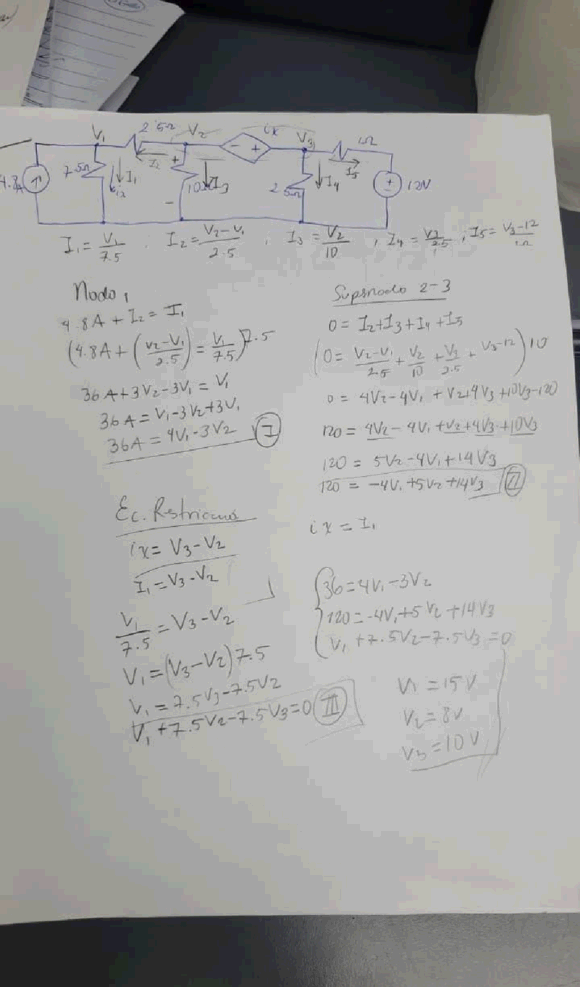 V₁ 2.5Ω V₂ ix V₃ 1Ω
4.8A 7.5Ω I₁ ix I₂ + - 10Ω I₃ - + 2.5Ω I₄ I₅ 12V
I₁ = V₁/7.5 , I₂ = V₂-V₁/2.5 ; I₃ = V₂/10 ; I₄ = V₃/2.5 ; I₅ = V₃-12/1Ω
Nodo 1
4.8A + I₂ = I₁
(4.8A + (V₂-V₁/2.5) = V₁/7.5) 7.5
36A + 3V₂ - 3V₁ = V₁
36A = V₁ - 3V₂ + 3V₁
36A = 4V₁ - 3V₂ (I)
Supernodo 2-3
0 = I₂ + I₃ + I₄ + I₅
(0 = V₂-V₁/2.5 + V₂/10 + V₃/2.5 + V₃-12) 10
0 = 4V₂ - 4V₁ + V₂ + 4V₃ + 10V₃ - 120
120 = 4V₂ - 4V₁ + V₂ + 4V₃ + 10V₃
120 = 5V₂ - 4V₁ + 14V₃
120 = -4V₁ + 5V₂ + 14V₃ (II)
ix = I₁
Ec.
ix = V₃ - V₂
I₁ = V₃ - V₂
V₁/7.5 = V₃ - V₂
V₁ = (V₃ - V₂) 7.5
V₁ = 7.5V₃ - 7.5V₂
V₁ + 7.5V₂ - 7.5V₃ = 0 (III)
36 = 4V₁ - 3V₂
120 = -4V₁ + 5V₂ + 14V₃
V₁ + 7.5V₂ - 7.5V₃ = 0
V₁ = 15V
V₂ = 8V
V₃ = 10V